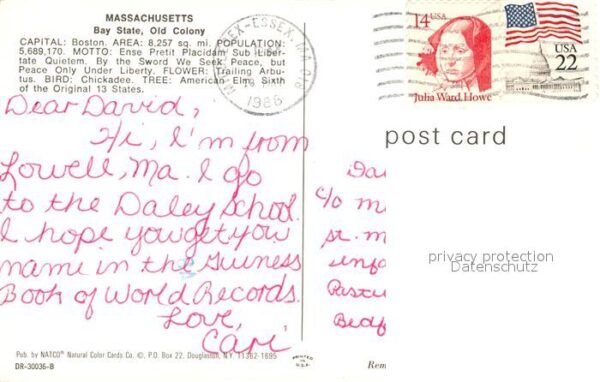 MASSACHUSETTS
Bay State, Old Colony
CAPITAL: Boston. AREA: 8,257 sq. mi. POPULATION:
5,689,170. MOTTO: Ense Pretit Placidam Sub Libertate
Quietem. By the Sword We Seek Peace, but
Peace Only Under Liberty. FLOWER: Trailing Arbutus.
BIRD: Chickadee. TREE: American Elm. Sixth
of the Original 13 States.
MIDDLESEX-ESSEX, MA 018
1986
14¢
USA
Julia Ward Howe
USA
22
post card
Dear David,
Hi, I'm from
Lowell, Ma. I go
to the Daley School.
I hope you get you
name in the Guiness
Book of World Records.
Love,
Cari
c/o
privacy protection
Datenschutz
Pub. by NATCO® Natural Color Cards Co. © P.O. Box 22, Douglaston, N.Y. 11362-1695
DR-30036-B
PRINTED IN U.S.A.
Rem